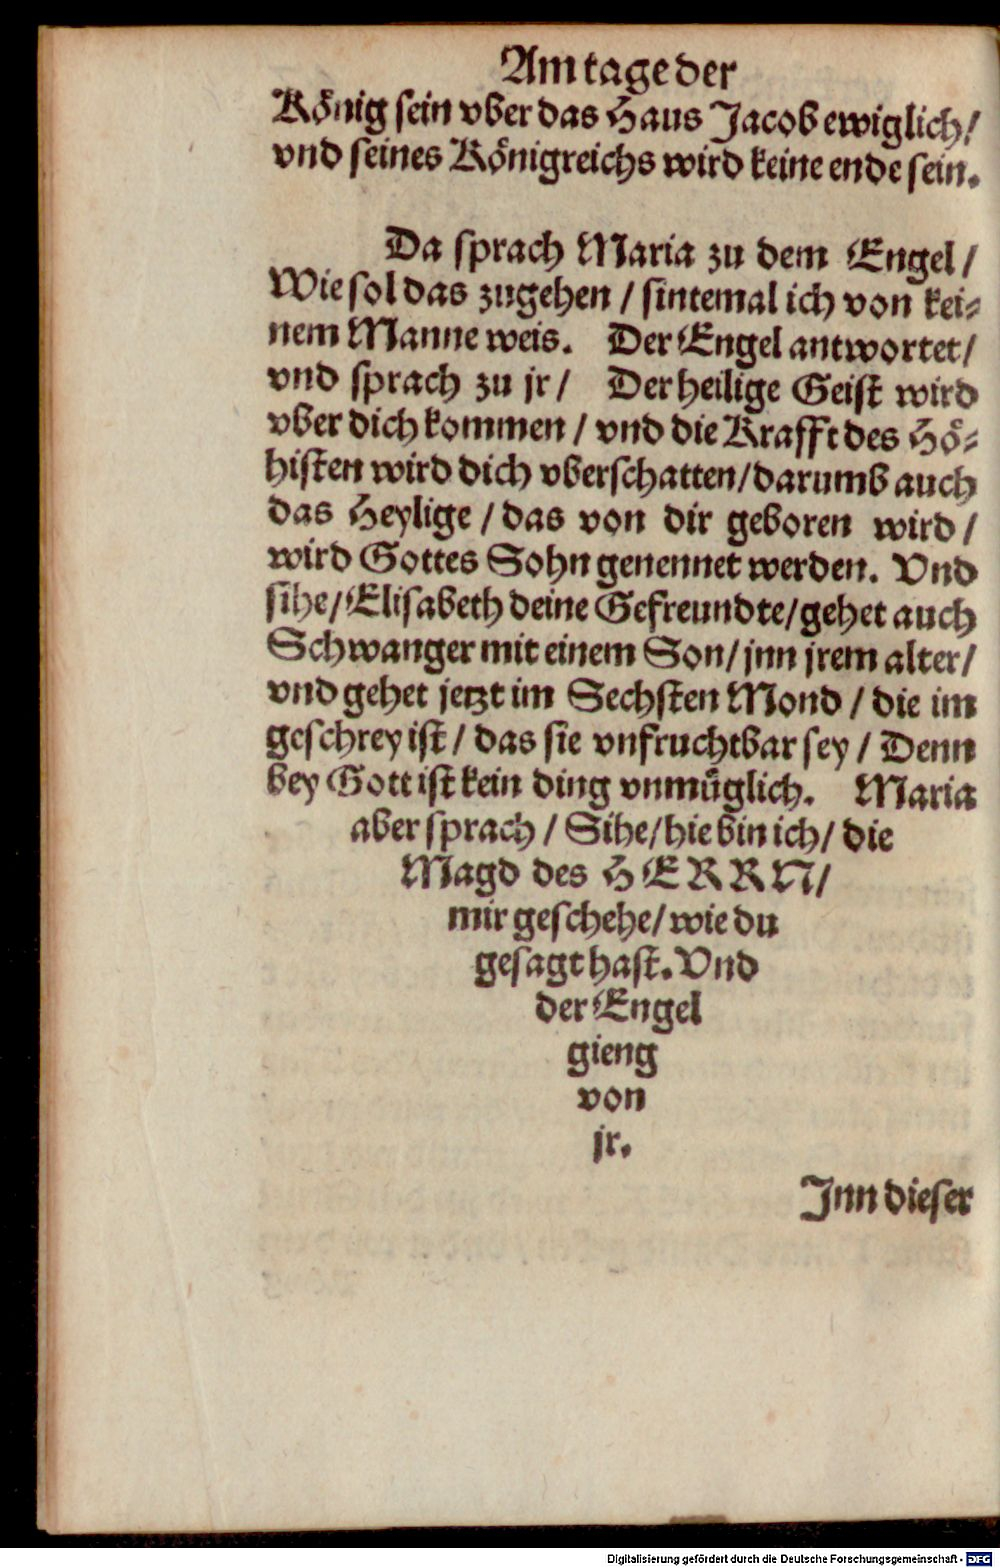 Am tage der
König sein vber das Haus Jacob ewiglich/
vnd seines Königreichs wird keine ende sein.
Da sprach Maria zu dem Engel /
Wie sol das zugehen / sintemal ich von kei-
nem Manne weis. Der Engel antwortet/
vnd sprach zu jr / Der heilige Geist wird
vber dich kommen / vnd die Krafft des Hö-
histen wird dich vberschatten/ darumb auch
das Heylige / das von dir geboren wird /
wird Gottes Sohn genennet werden. Vnd
sihe/ Elisabeth deine Gefreundte/ gehet auch
Schwanger mit einem Son/ jnn jrem alter/
vnd gehet jetzt im Sechsten Mond / die im
geschrey ist / das sie vnfruchtbar sey / Denn
bey Gott ist kein ding vnmüglich. Maria
aber sprach / Sihe/ hie bin ich/ die
Magd des HERRN/
mir geschehe/ wie du
gesagt hast. Vnd
der Engel
gieng
von
jr.
Jnn dieser
Digitalisierung gefördert durch die Deutsche Forschungsgemeinschaft - DFG